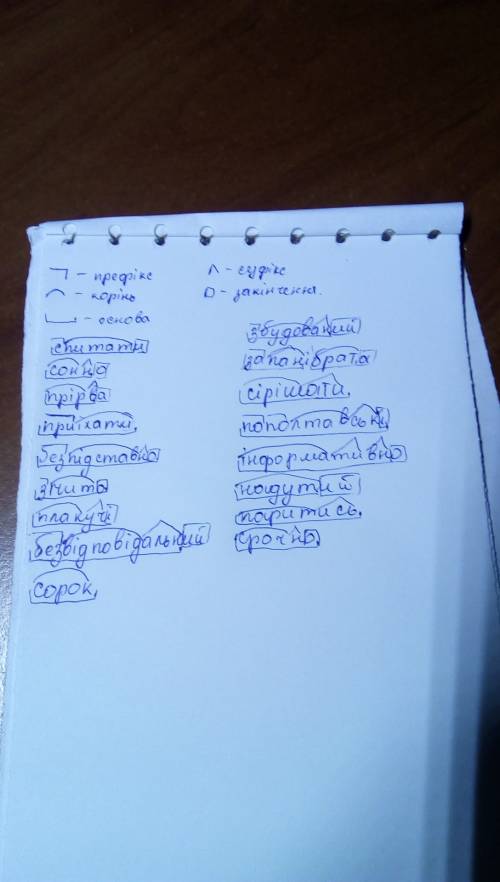 ¬ - префікс
⌒ - корінь
⎵ - основа
спитати
сонна
прірва
приїхати,
безпідставна
злита
плакучі
безвідповідальний
сорок,
^ - суфікс
□ - закінчення.
збудований
запанібрата
сірішати,
пополтавськи
інформативно
надутий
паритись,
срочно,